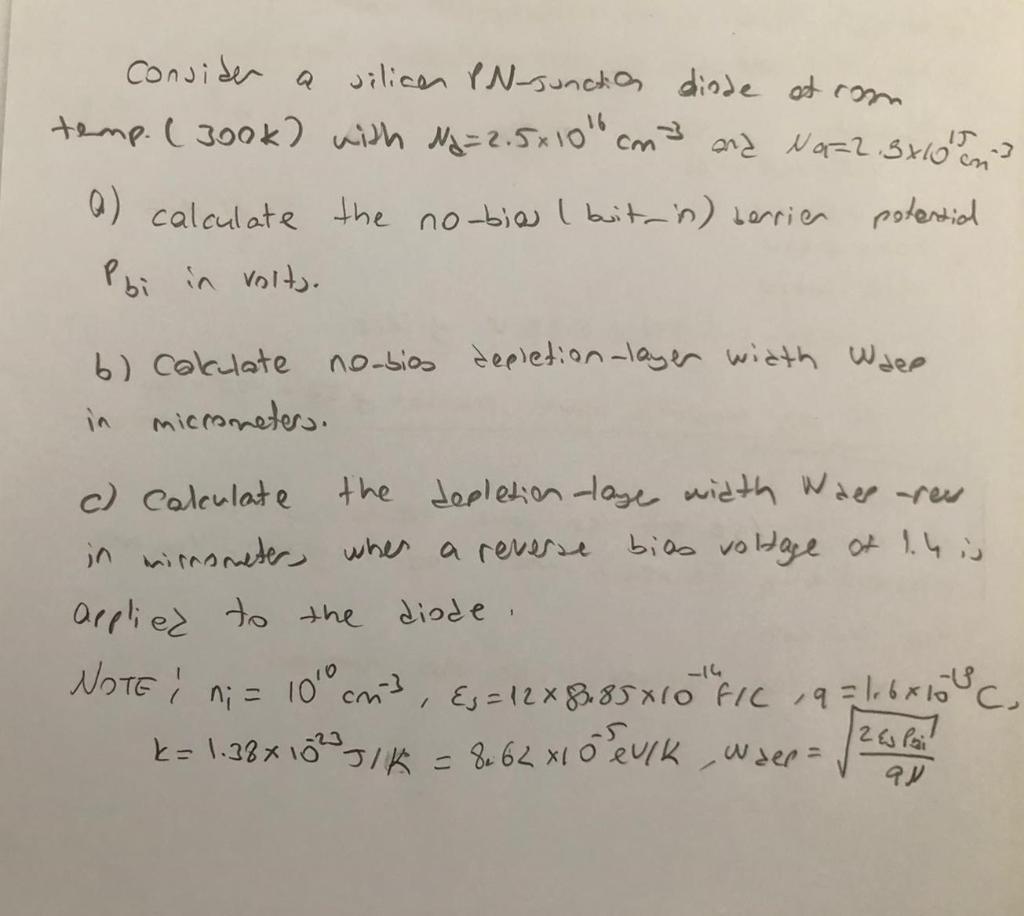 Consider a silicon PN-junction diode at room
temp. (300k) with Nd=2.5x10¹⁶ cm⁻³ and Na=2.5x10¹⁵ cm⁻³
a) calculate the no-bias (buit-in) barrier potential
Pbi in volts.
b) Calculate no-bias depletion-layer width Wdep
in micrometers.
c) Calculate the depletion-laye width Wdep-rev
in micrometers when a reverse bias voltage of 1.4 is
applied to the diode.
NOTE: ni = 10¹⁰ cm⁻³, Es=12x8.85x10⁻¹⁴ F/C, q=1.6x10⁻¹⁹ C,
k=1.38x10⁻²³ J/K = 8.62x10⁻⁵ eV/K, Wdep=√(2Es Pbi/qN)